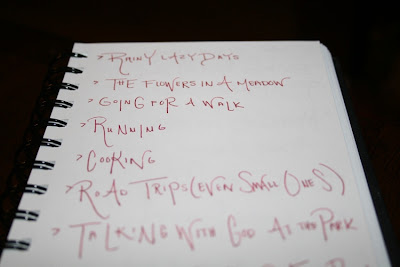 > RAINY LAZY DAYS
> THE FLOWERS IN A MEADOW
> GOING FOR A WALK
> RUNNING
> COOKING
> ROAD TRIPS (EVEN SMALL ONES)
> TALKING WITH GOD AT THE PARK